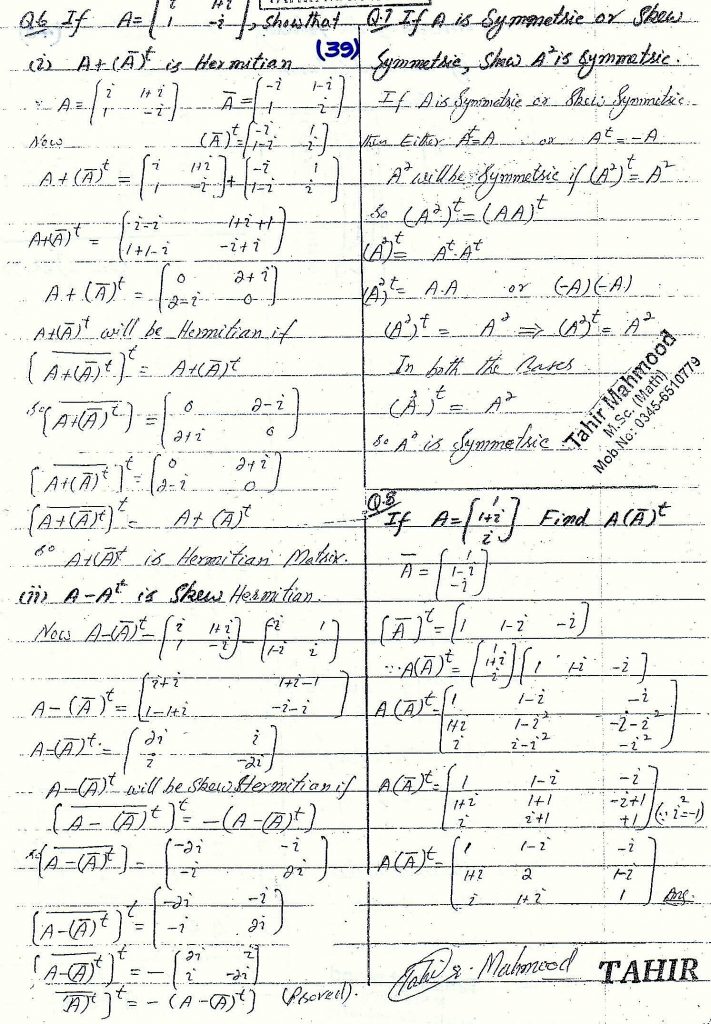 Q.6 If A= [i 1+i
1 -i], show that
(39)
(i) A+(Ā)^t is Hermitian
∵ A = [i 1+i
1 -i] Ā = [-i 1-i
1 i]
Now (Ā)^t = [-i 1
1-i i]
A+(Ā)^t = [i 1+i
1 -i] + [-i 1
1-i i]
A+(Ā)^t = [-i-i 1+i+1
1+1-i -i+i]
A+(Ā)^t = [0 2+i
2-i 0]
A+(Ā)^t will be Hermitian if
[\overline{A+(Ā)^t}]^t = A+(Ā)^t
so [\overline{A+(Ā)^t}] = [0 2-i
2+i 0]
[\overline{A+(Ā)^t}]^t = [0 2+i
2-i 0]
[\overline{A+(Ā)^t}]^t = A+(Ā)^t
so A+(Ā)^t is Hermitian Matrix.
(ii) A-Ā^t is Skew Hermitian.
Now A-(Ā)^t = [i 1+i
1 -i] - [-i 1
1-i i]
A-(Ā)^t = [i+i 1+i-1
1-1+i -i-i]
A-(Ā)^t = [2i i
i -2i]
A-(Ā)^t will be Skew Hermitian if
[\overline{A-(Ā)^t}]^t = -(A-(Ā)^t)
so [\overline{A-(Ā)^t}] = [-2i -i
-i 2i]
[\overline{A-(Ā)^t}]^t = [-2i -i
-i 2i]
[\overline{A-(Ā)^t}]^t = -[2i i
i -2i]
Ā)^t]^t = -(A-(Ā)^t) (Proved).
Q.7 If A is Symmetric or Skew
Symmetric, Show A² is Symmetric.
If A is Symmetric or Skew Symmetric
then Either A^t=A or A^t=-A
A² will be Symmetric if (A²)^t = A²
So (A²)^t = (AA)^t
(A²)^t = A^t.A^t
(A²)^t = A.A or (-A)(-A)
(A²)^t = A² ⇒ (A²)^t = A²
In both the Cases
(A²)^t = A²
so A² is Symmetric
Tahir Mahmood
M.Sc. (Math)
Mob No: 0345-6510779
Q.8
If A = [1
1+i
i] Find A(Ā)^t
Ā = [1
1-i
-i]
[Ā]^t = [1 1-i -i]
∵ A(Ā)^t = [1
1+i
i] [1 1-i -i]
A(Ā)^t = [1 1-i -i
1+i 1-i² -i-i²
i i-i² -i²]
A(Ā)^t = [1 1-i -i
1+i 1+1 -i+1
i i+1 +1] (∵ i²=-1)
A(Ā)^t = [1 1-i -i
1+i 2 1-i
i 1+i 1] Ans.
Mahmood
TAHIR